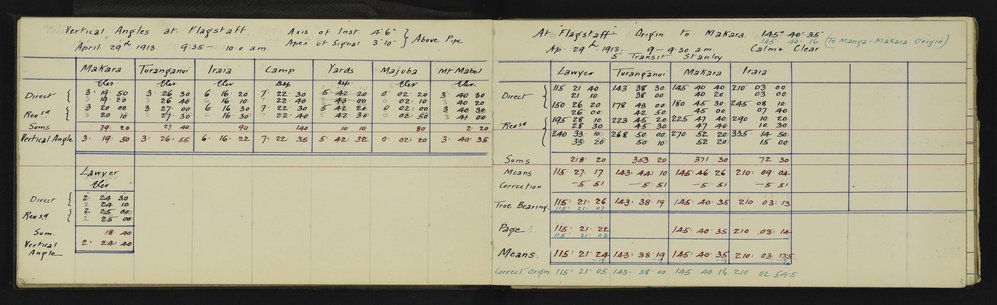 Vertical Angles at Flagstaff. Axis of Inst 4' 6"
Apex of Signal 3' 10" } Above Pipe
April 29th 1913. 9.35 – 10.0 am.
Makara Turanganui Iraia Camp Yards Majuba Mt Mabel
Elev Elev Elev Dep Dep. Elev Elev
Direct 3. 19 50 3. 26 30 6 16 20 7. 22 30 5 42 20 0 02. 20 3. 40 30
19 20 26 40 16 10 22 40 43 00 02 10 40 20
Revsd 3 20 00 3 27 00 6 16 30 7 22 30 5 42 20 0 02 00 3 40 30
20 10 27 30 16 30 22 40 42 30 02 50 41 00
Sums 79 20 27 40 90 140 10 10 80 2 20
Vertical Angle 3. 19 50 3. 26. 55 6. 16. 22 7. 22 35 5. 42. 32 0 02. 20 3. 40. 35
Lawyer
Elev
Direct 2. 24 30
2 24 10
Revsd 2 25 00
2 25 00
Sum. 18. 40
Vertical Angle 2. 24. 40
At Flagstaff Origin to Makara. 145° 40' 35"
145. 40. 16 (Te Manga-Makara Origin)
Ap. 29th 1913. 9 – 9.30 am. Calm & Clear
5" Transit Stanley
Lawyer Turanganui Makara Iraia
Direct 115 21 40 143 38 30 145 40 40 210 03 00
21 10 38 00 40 20 03 00
150 26 20 178 43 00 180 45 30 245 08 10
26 00 42 50 45 00 07 40
Revsd 195 28 10 223 45 20 225 47 40 290 10 20
28 30 45 30 47 40 10 30
240 33 10 268 50 00 270 52 20 335 14 50
33 20 50 10 52 20 15 00
Sums 218 20 353 20 371 30 72 30
Means 115 27 17 143. 44 10 145. 46 26 210. 09 04
Correction –5 51 –5 51 –5 51 –5 51
True Bearing. 115. 21. 26 143. 38. 19 145. 40. 35 210 03. 13
115. 21. 07
Page 115. 21. 22 145. 40 35 210 .03. 14
115. 21. 03
Means. 115. 21. 24 143. 38. 19 145. 40. 35 210. 03. 13.5
Correct Origin 115. 21. 05 143. 38. 00 145 40 16 210 02 54.5